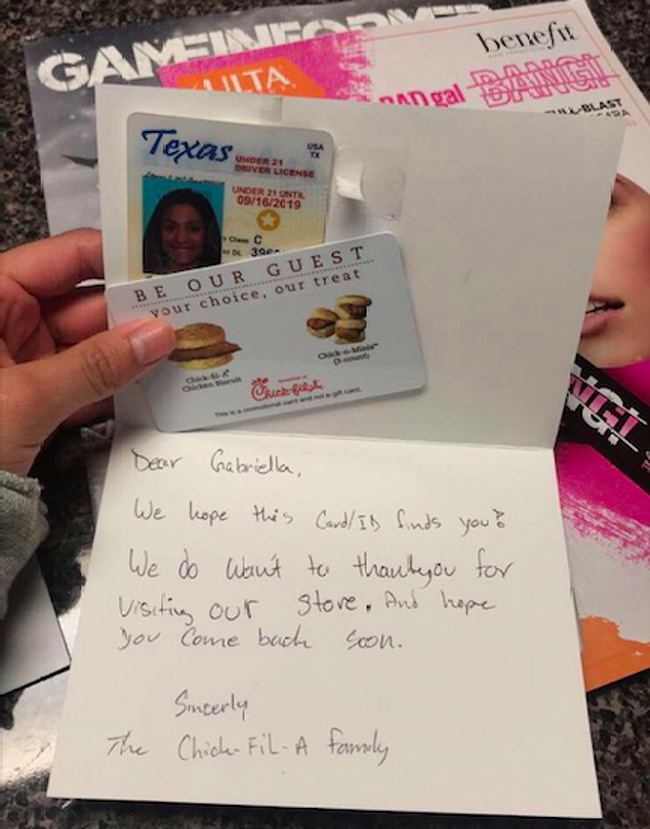 GAMEINFORMER
benefit
SAN FRANCISCO
ULTA
BADgal BANG!
FULL-BLAST
Texas
USA
TX
UNDER 21
DRIVER LICENSE
UNDER 21 UNTIL
09/16/2019
Class C
DL
BE OUR GUEST
your choice, our treat
Chick-fil-A®
Chicken Biscuit
Chick-n-Minis™
(3-count)
Chick-fil-A
This is a promotional card and not a gift card.
Dear Gabriella,
We hope this Card/ID finds you!
We do want to thankyou for
Visiting our store. And hope
you come back soon.
Sincerly
The Chick-Fil-A family